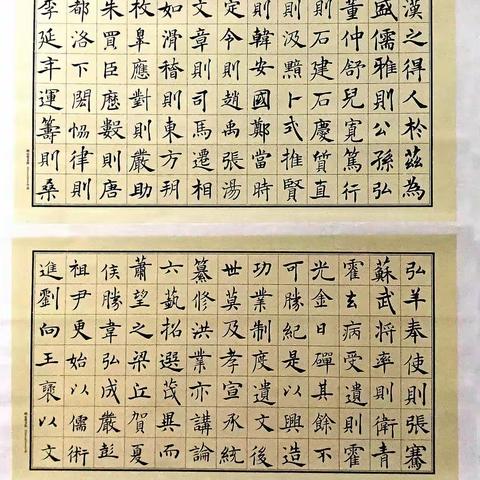 漢之得人於茲為
盛儒雅則公孫弘
董仲舒兒寬篤行
則石建石慶質直
則汲黯卜式推賢
則韓安國鄭當時
定令則趙禹張湯
文章則司馬遷相
如滑稽則東方朔
枚皋應對則嚴助
朱買臣歷數則唐
都洛下閎協律則
李延年運籌則桑
弘羊奉使則張騫
蘇武將率則衛青
霍去病受遺則霍
光金日磾其餘不
可勝紀是以興造
功業制度遺文後
世莫及孝宣承統
纂修洪業亦講論
六藝招選茂異而
蕭望之梁丘賀夏
侯勝韋弘成嚴彭
祖尹更始以儒術
進劉向王褒以文